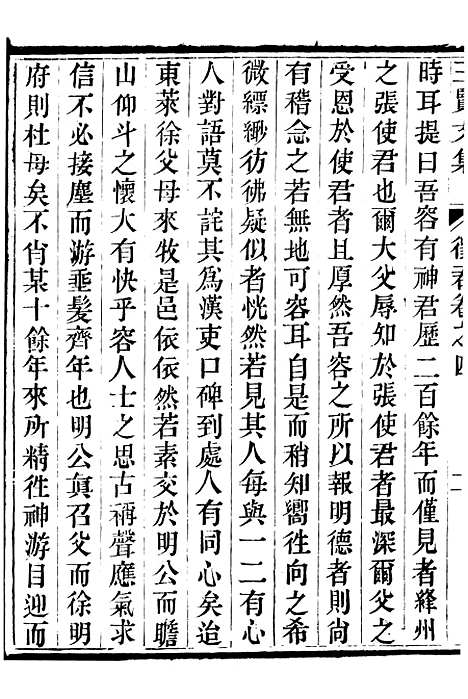 三賢文集
卷之四
二
時耳提曰吾容有神君歷二百餘年而僅見者絳州
之張使君也爾大父辱知於張使君者最深爾父之
受恩於使君者且厚然吾容之所以報明德者則尚
有稽念之若無地可容耳自是而稍知嚮徃向之希
微縹緲彷彿疑似者恍然若見其人每與一二有心
人對語莫不詫其為漢吏口碑到處人有同心矣迨
東萊徐父母來牧是邑依依然若素交於明公而瞻
山仰斗之懷大有快乎容人士之思古稱聲應氣求
信不必接塵而游垂髮齊年也明公眞召父而徐明
府則杜母矣不肖某十餘年來所精徃神游目迎而